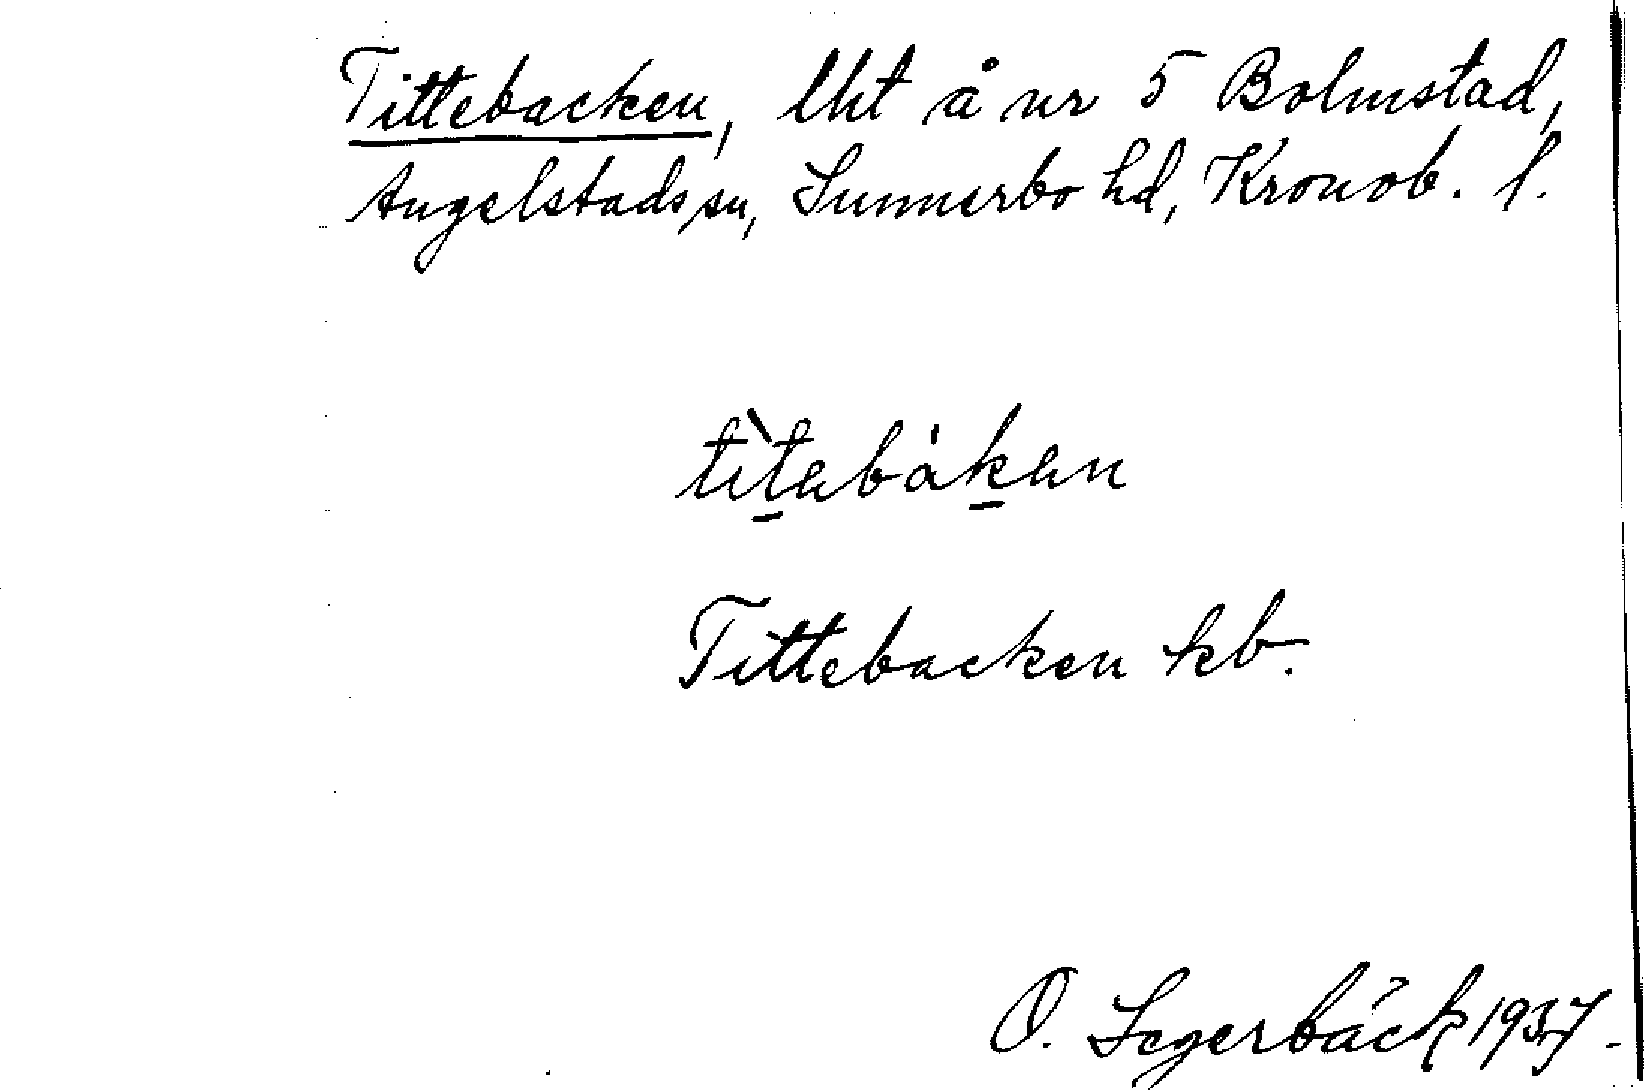 Tittebacken, lht å nr 5 Bolmstad,
Angelstads sn, Sunnerbo hd, Kronob. l.
tìtabákan
Tittebacken kb.
O. Segerbäck 1937.